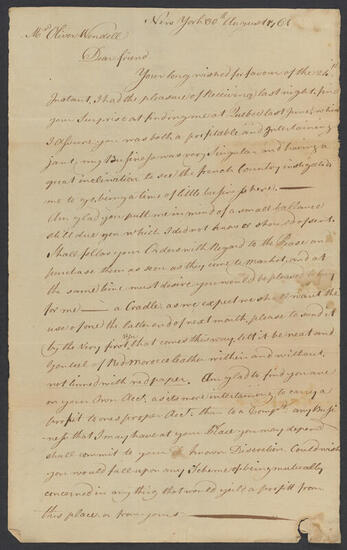 New York 30th August 1761
Mr Oliver Wendell
Dear friend
Your long wished for favour of the 24th
Instant, I had the pleasure of Receiving last night, find
your Surprise at finding me at Quebec last June, which
I assure you was both a profitable and Entertaining
jant, my Business was very Singular and having a
great inclination to see the french Country instigated
me to go, being a time of little business here.
Am glad you put me in mind of a small ballance
still due you which I do not know of should of sent.
Shall follow your Orders with Regard to the
purchase them as soon as they come to market, and at
the same time must desire you would be pleased to buy
for me — a Cradle, as we expect we shall want the
use of one the latter end of next month, please to send it
by the Very first that comes this way, let it be neat and
Genteel of Red Morocco leather within and without,
not lined with red paper. Am glad to find you are
on your Own Acct, as its more intertaining to carry a
profit to ones proper Acct. then to a Comp. any Busi
ness that I may have at your Place you may depend
shall commit to your known Discretion Could wish
you would fall upon any Scheme of being mutually
concerned in any thing that would yield a profit from
this place or from yours